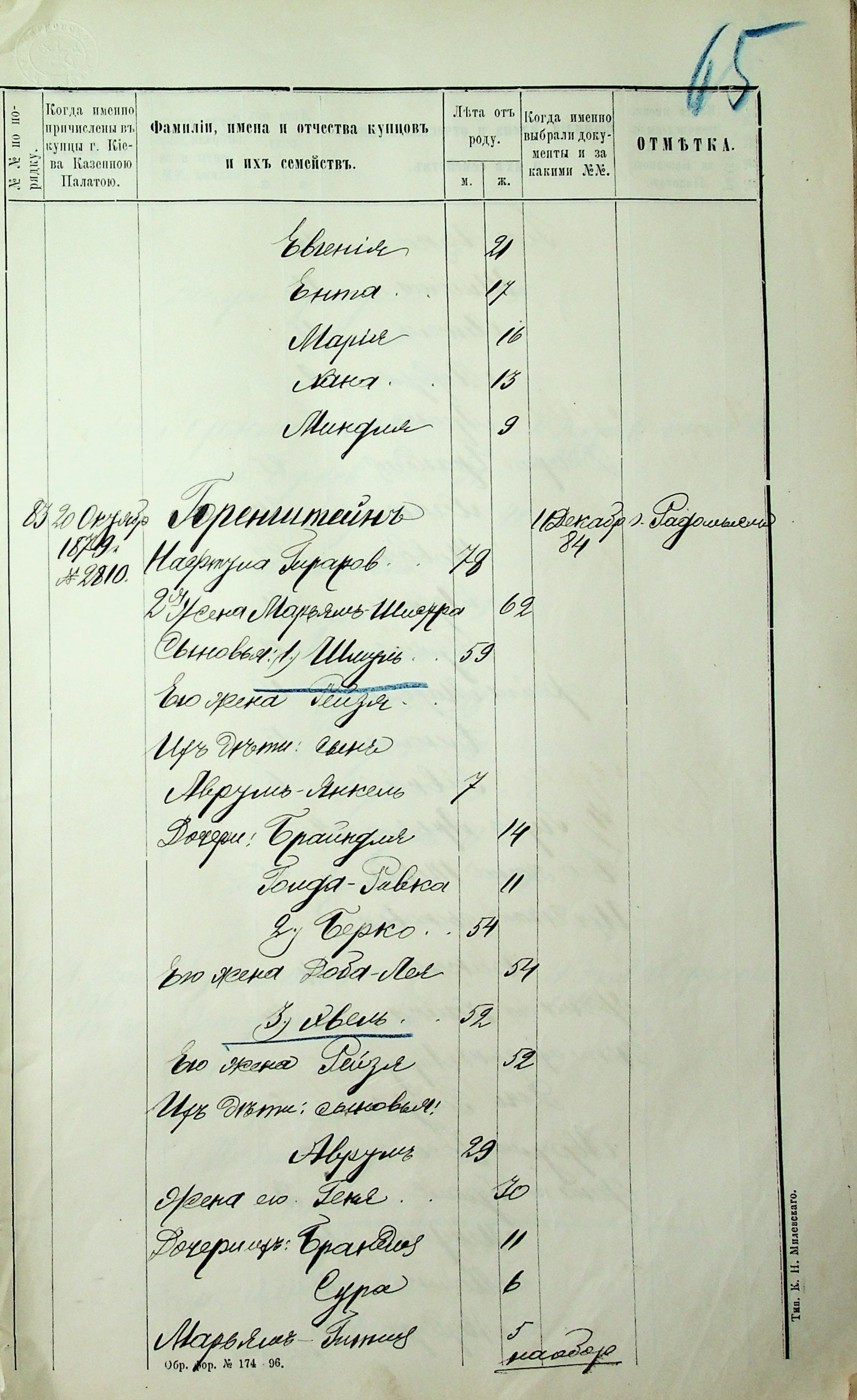 65
№№ по по-
рядку.
Когда именно
причислены въ
купцы г. Кіе-
ва Казенною
Палатою.
Фамиліи, имена и отчества купцовъ
и ихъ семействъ.
Лѣта отъ
роду.
м. ж.
Когда именно
выбрали доку-
менты и за
какими №№.
ОТМѢТКА.
Евгенія 21
Ента 17
Марія 16
Хана 13
Миндля 9
83 20 Октября Горенштейнъ 1 Декабр г. Радомысля
1879 г. 84
№ 2810. Нафтула Гираков 78
2я Жена Марьямъ-Шифра 62
Сыновья: 1) Шмуль 59
Его жена Рейзя
Ихъ дѣти: сынъ
Аврумъ-Янкель 7
Дочери: Брайндля 14
Голда-Ривка 11
2) Берко 54
Его жена Доба-Лея 54
3) Хвель 52
Его жена Рейзя 52
Ихъ дѣти: сыновья:
Аврумъ 29
Жена его Геня 30
Дочери ихъ: Брандля 11
Сура 6
Марьямъ- 5
наобор
Обр. фор. № 174 - 96.
Тип. К. Н. Милевскаго.